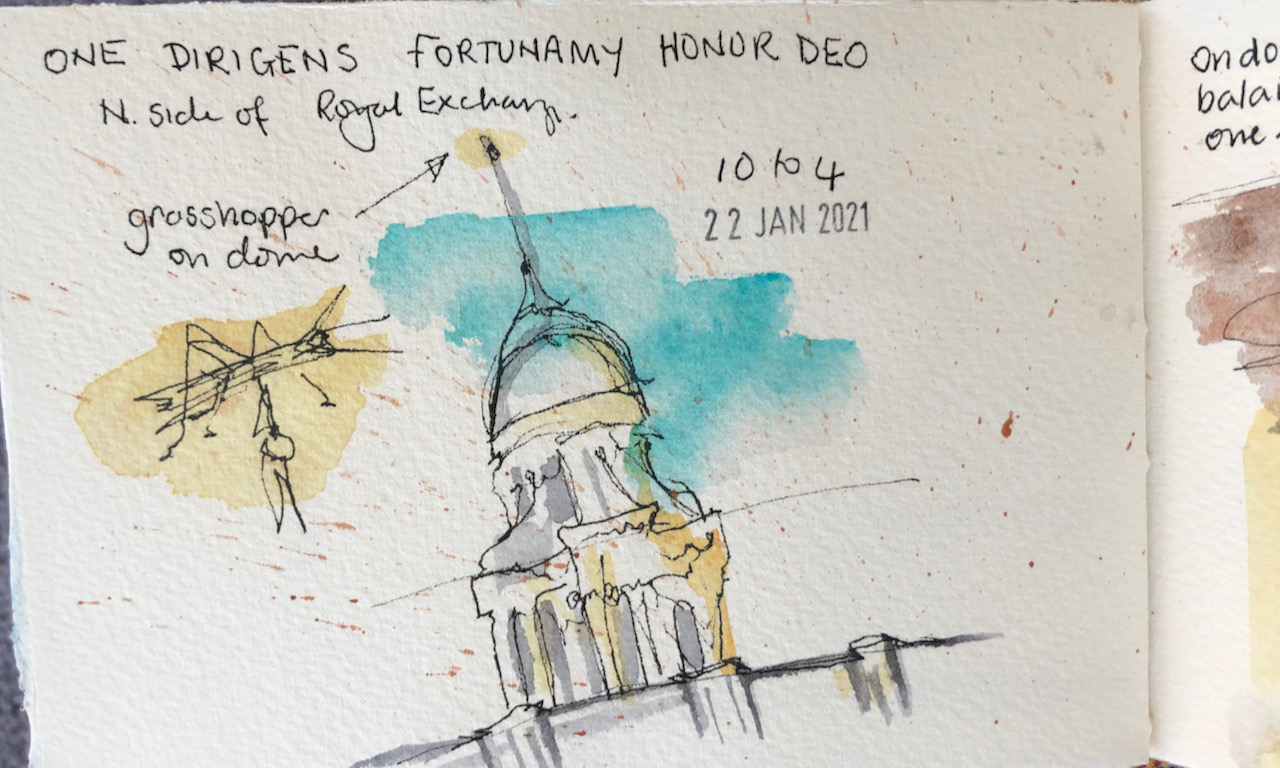 ONE DIRIGENS FORTUNAMY HONOR DEO
N. side of Royal Exchange.
grasshopper
on dome
10 to 4
22 JAN 2021
on do
balan
one